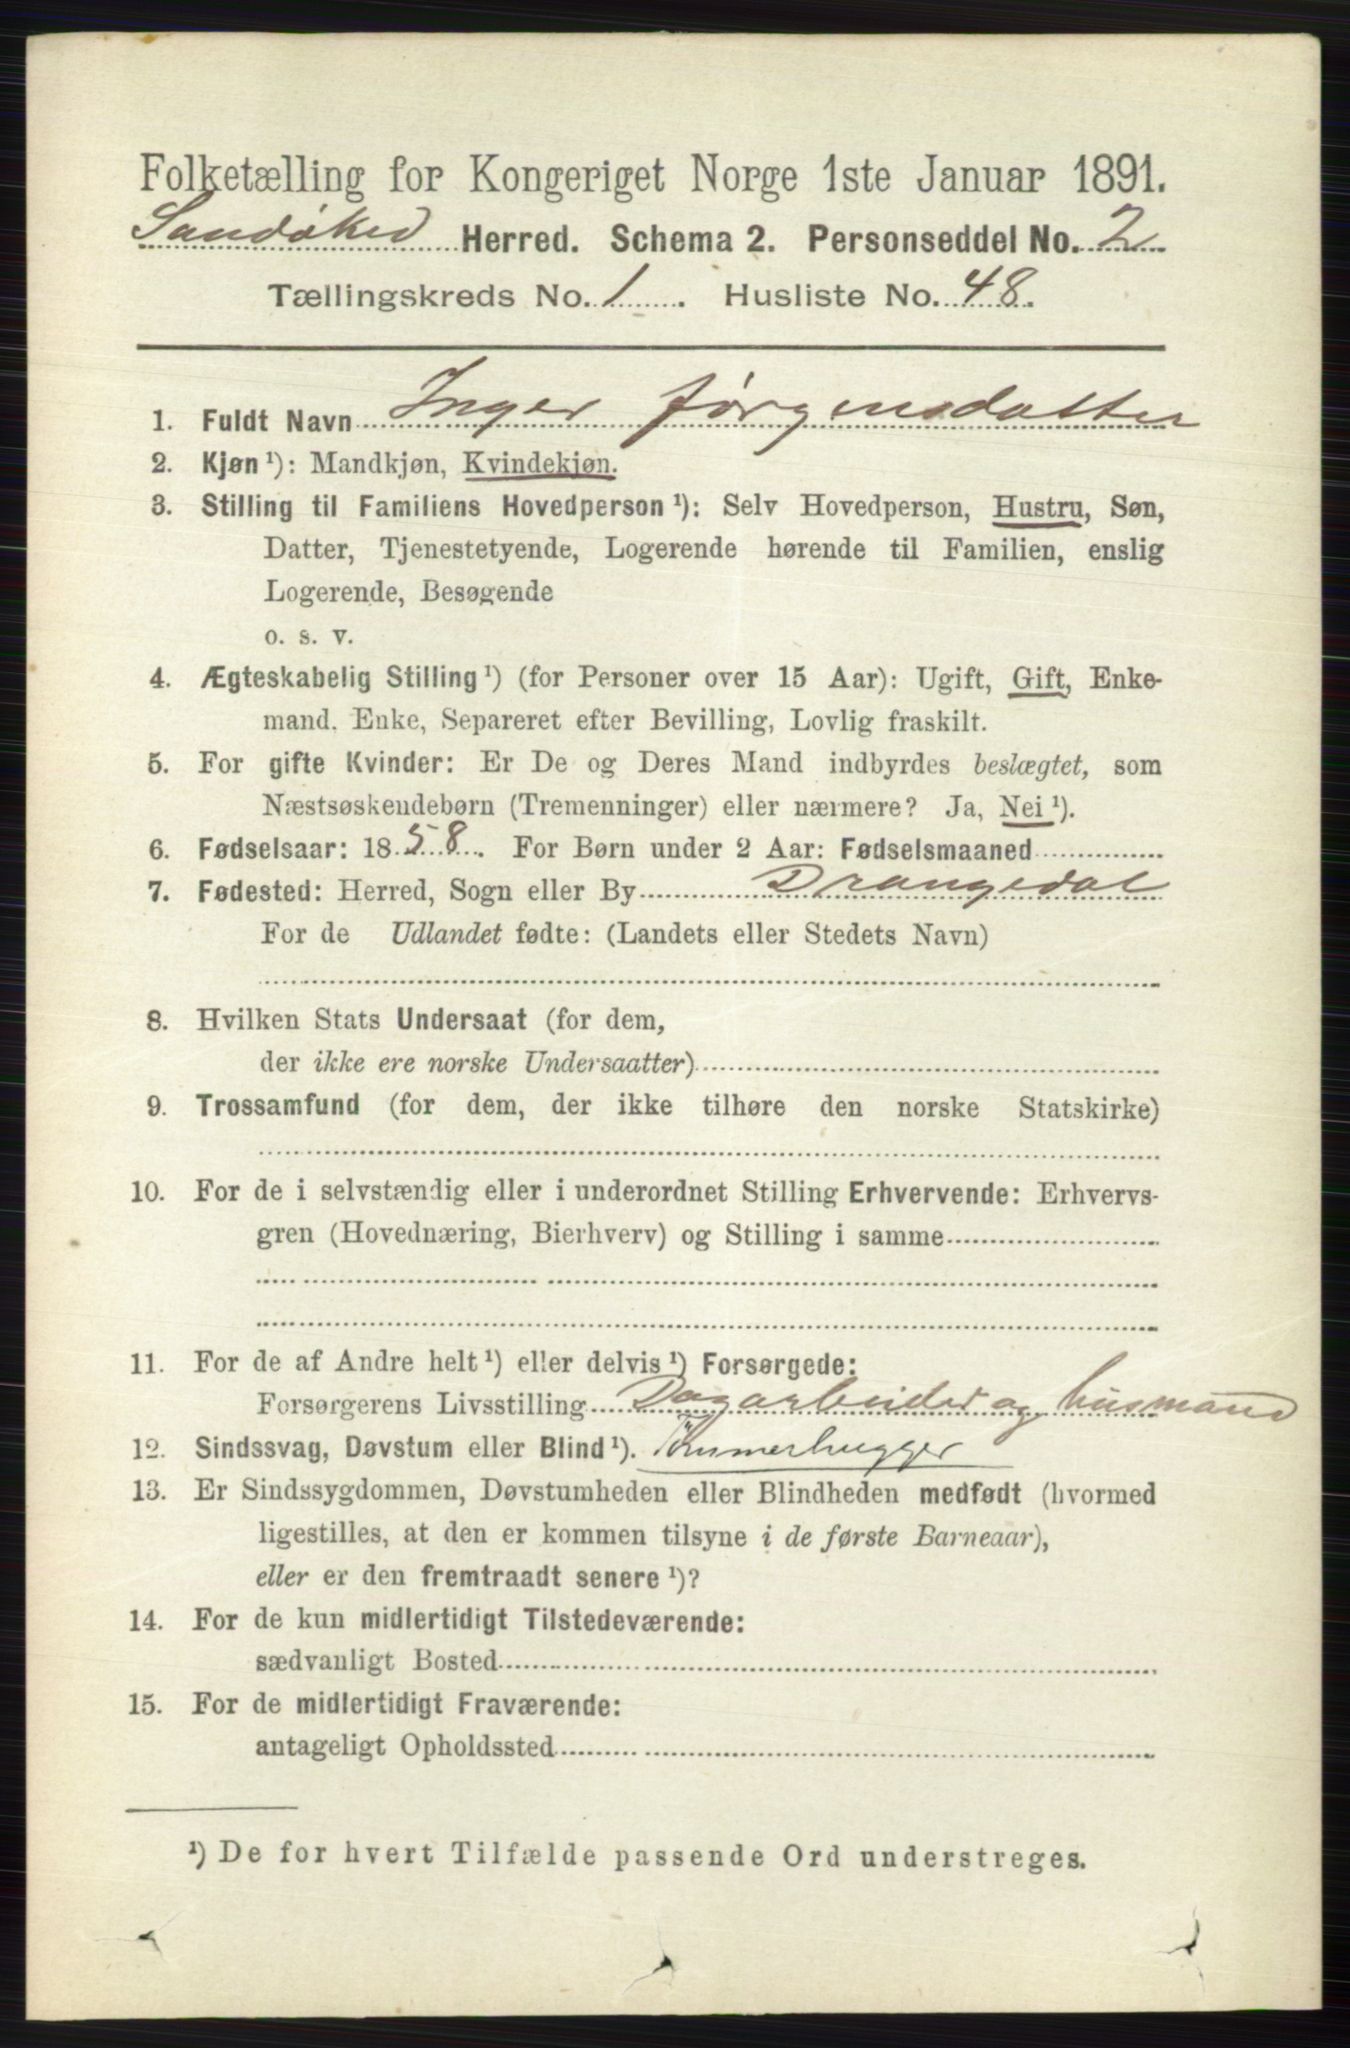 Folketælling for Kongeriget Norge 1ste Januar 1891.
Sandøked Herred. Schema 2. Personseddel No. 2
Tællingskreds No. 1. Husliste No. 48.
1. Fuldt Navn Inger Jørgensdatter
2. Kjøn ¹): Mandkjøn, Kvindekjøn.
3. Stilling til Familiens Hovedperson ¹): Selv Hovedperson, Hustru, Søn,
Datter, Tjenestetyende, Logerende hørende til Familien, enslig
Logerende, Besøgende
o. s. v.
4. Ægteskabelig Stilling ¹) (for Personer over 15 Aar): Ugift, Gift, Enke-
mand, Enke, Separeret efter Bevilling, Lovlig fraskilt.
5. For gifte Kvinder: Er De og Deres Mand indbyrdes beslægtet, som
Næstsøskendebørn (Tremenninger) eller nærmere? Ja, Nei ¹).
6. Fødselsaar: 1858. For Børn under 2 Aar: Fødselsmaaned
7. Fødested: Herred, Sogn eller By Drangedal
For de Udlandet fødte: (Landets eller Stedets Navn)
8. Hvilken Stats Undersaat (for dem,
der ikke ere norske Undersaatter)
9. Trossamfund (for dem, der ikke tilhøre den norske Statskirke)
10. For de i selvstændig eller i underordnet Stilling Erhvervende: Erhvervs-
gren (Hovednæring, Bierhverv) og Stilling i samme
11. For de af Andre helt ¹) eller delvis ¹) Forsørgede:
Forsørgerens Livsstilling Dagarbeider og husmand
12. Sindssvag, Døvstum eller Blind ¹). Tømmerhugger
13. Er Sindssygdommen, Døvstumheden eller Blindheden medfødt (hvormed
ligestilles, at den er kommen tilsyne i de første Barneaar),
eller er den fremtraadt senere ¹)?
14. For de kun midlertidigt Tilstedeværende:
sædvanligt Bosted
15. For de midlertidigt Fraværende:
antageligt Opholdssted
¹) De for hvert Tilfælde passende Ord understreges.